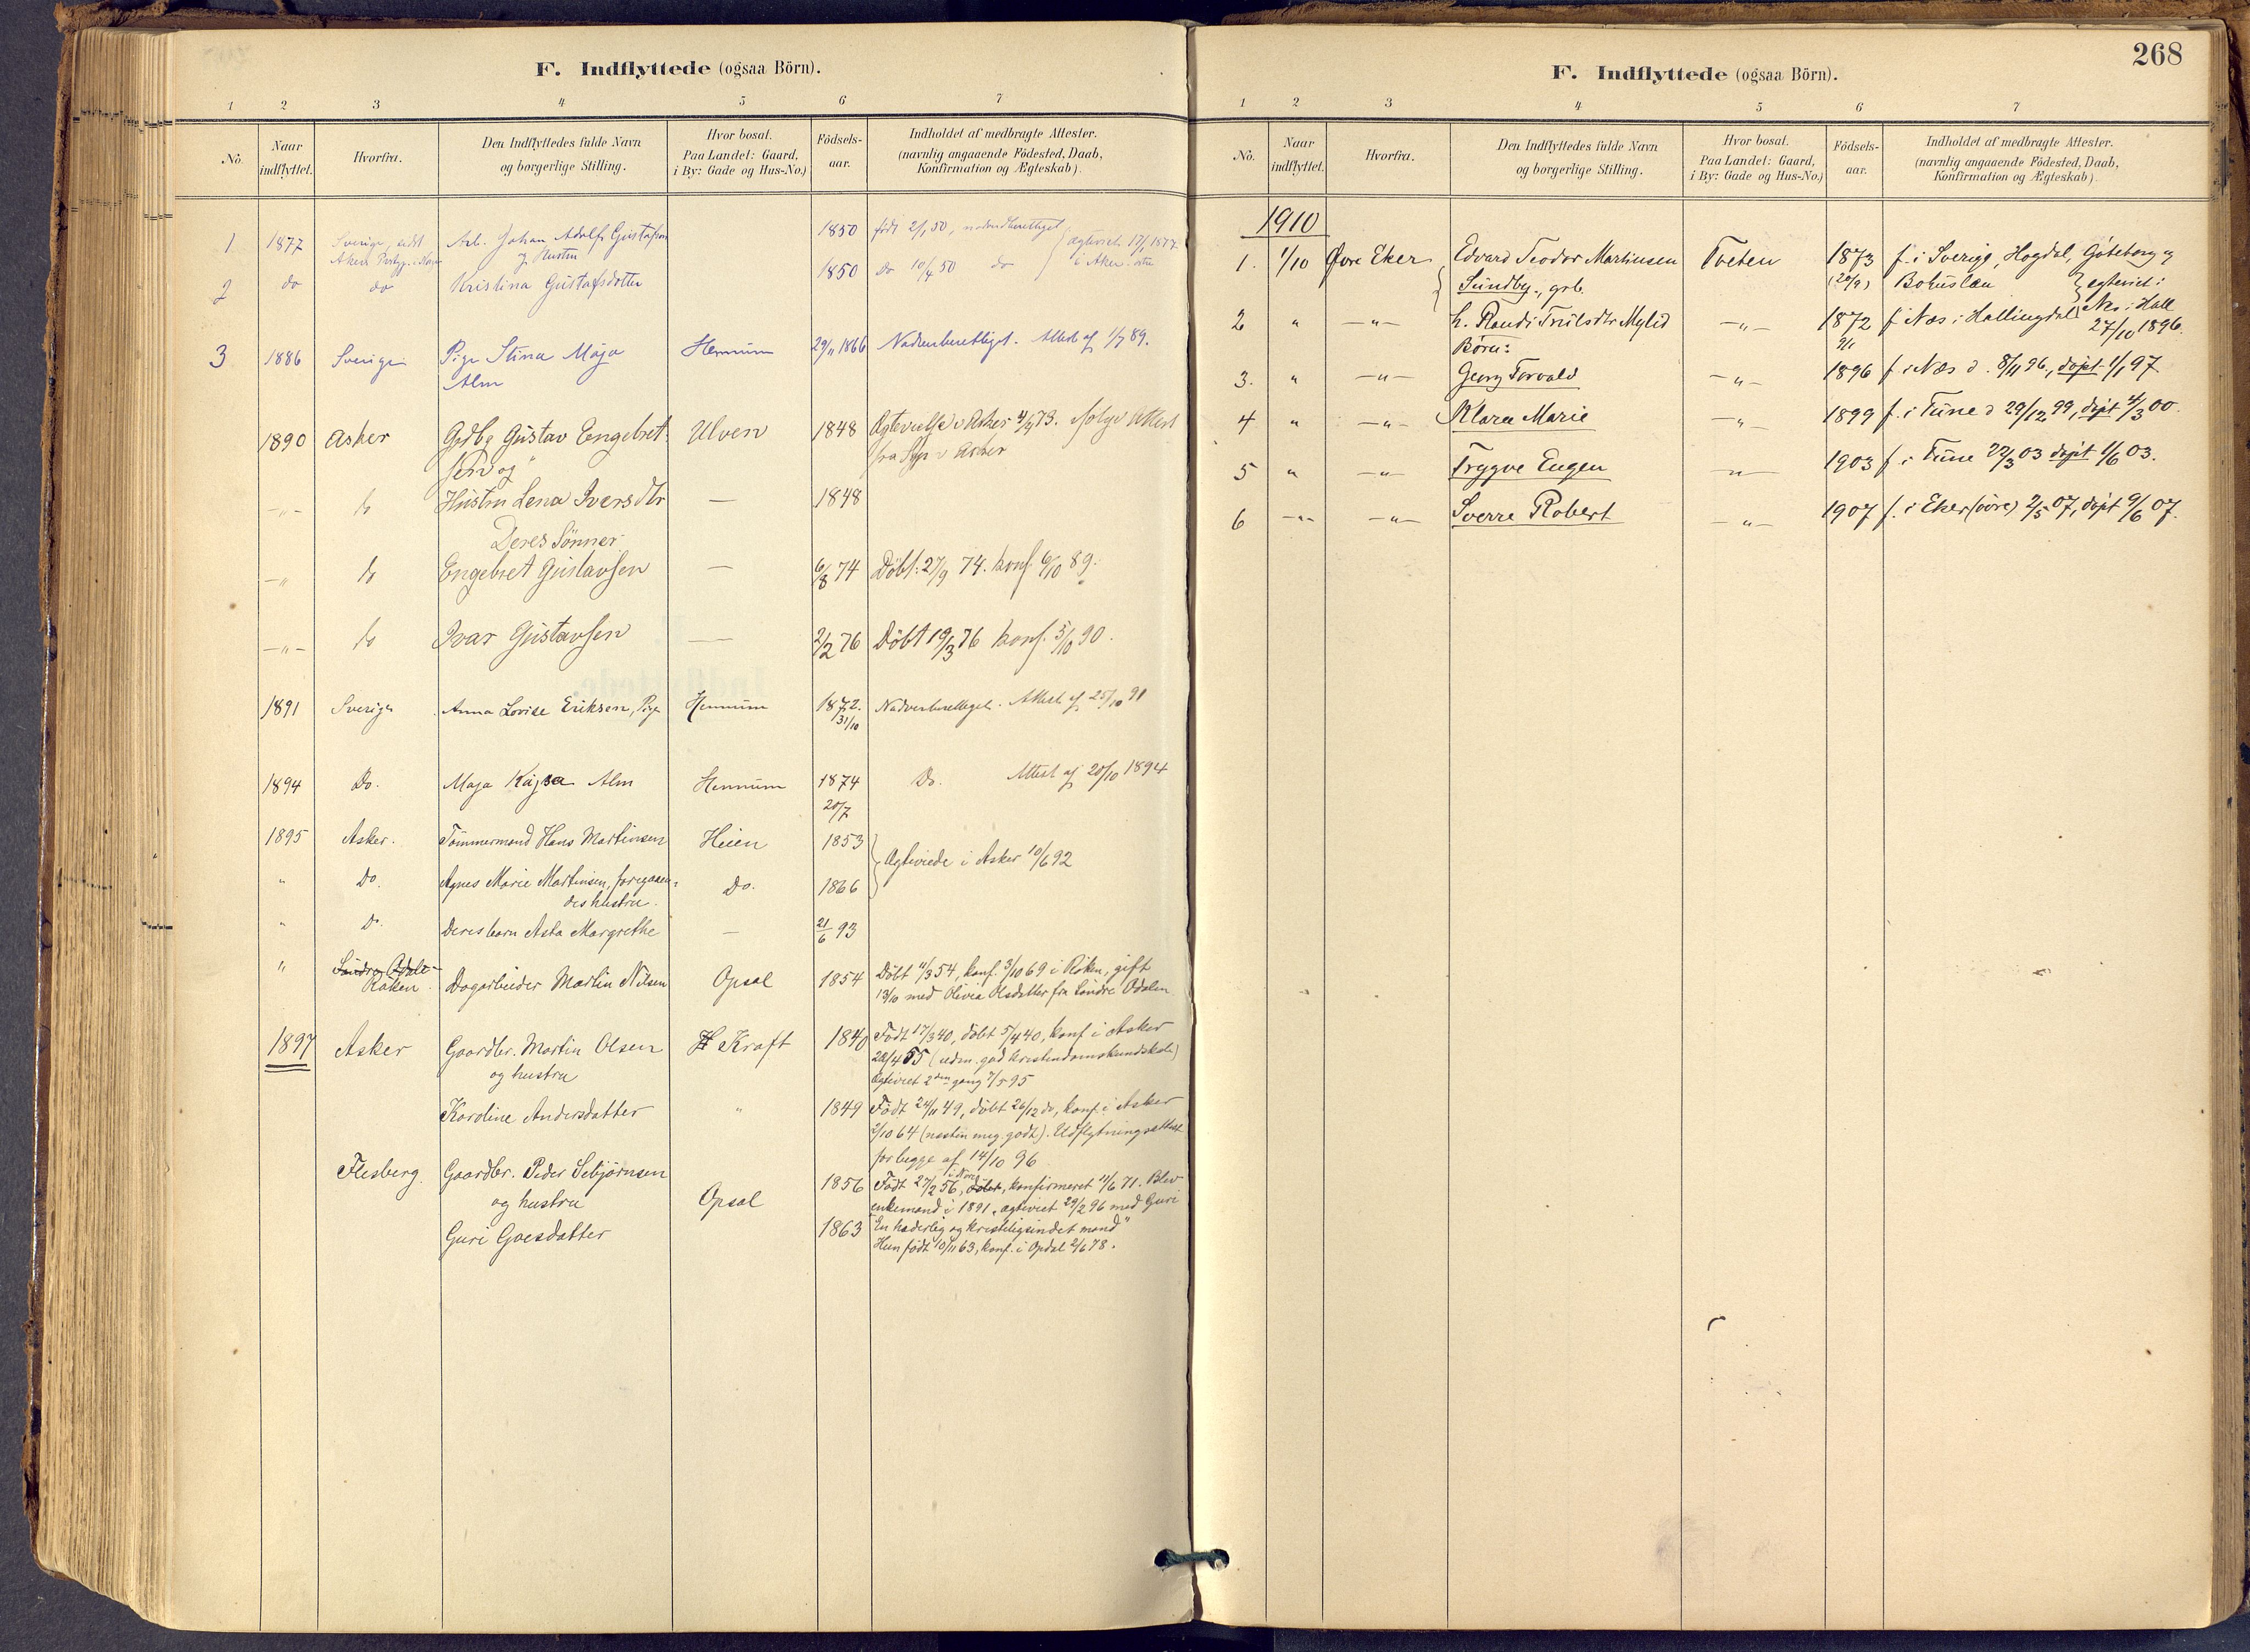 F. Indflyttede (ogsaa Börn).
1 2 3 4 5 6 7
No. Naar indflyttet. Hvorfra. Den Indflyttedes fulde Navn og borgerlige Stilling. Hvor bosat. Paa Landet: Gaard, i By: Gade og Hus-No.) Födsels-aar. Indholdet af medbragte Attester. (navnlig angaaende Födested, Daab, Konfirmation og Ægteskab).
1 1877 Sverige, sidst Arb. Johan Adolf Gustafson 1850 født 2/1 50,
og Hustru
2 do do Kristina Gustafsdotter 1850 do 10/4 50 do i Aker
3 1886 Sverige Pige Stina Maja Hennum 29/11 1866 Nadverberettiget. Attest af 1/7 89.
Alm
1890 Asker Grdbr Gustav Engebret- Ulven 1848 Ægteviede i Asker 73. ifølge Attest
sen og fra Spr i Asker
-"- do Hustru Lena Iversdtr — 1848
Deres Sønner
-"- do Engebret Gustavsen — 6/8 74 Döbt. 27/9 74. konf. 6/10 89.
-"- do Ivar Gustavsen — 2/2 76 Döbt 19/3 76 konf. 5/10 90.
1891 Sverige Anna Lovise Eriksen, Pige Hennum 1872. Nadverberettiget. Attest af 25/10 91
31/10
1894 Do. Maja Kajsa Alm Hennum 1874 Do. Attest af 20/10 1894
20/7
1895 Asker. Tömmermand Hans Martinsen Heien 1853
Ægteviede i Asker 10/6 92
" Do. Agnes Marie Martinsen, foregaaen- Do. 1866
des hustru.
" Do. Deres barn Asta Margrethe — 21/6 93
" Söndre Odalen
Röken Dagarbeider Martin Nilsen Opsal 1854 Döbt 11/3 54, konf. 3/10 69 i Röken, gift
13/10 med Olivia Olsdatter fra Söndre Odalen
1897 Asker Gaardbr. Martin Olsen Kraft 1840 Födt 17/3 40, döbt 5/4 40, konf. i Asker
og hustru 28/4 55 (udm. god kristendomskundskab)
Ægteviet 2den gang 7/5 95
Karoline Andersdatter " 1849 Födt 24/11 49, döbt 26/12 do, konf. i Asker
2/10 64 (næsten meg. godt). Udflytningsattest
for begge af 14/10 96
Flesberg. Gaardbr. Peder Sebjörnsen 1856 Födt 27/2 56, i Nore döbt, konfirmeret 11/6 71. Blev
og hustru Opsal enkemand i 1891, ægteviet 29/2 96 med Guri
Guri Goesdatter 1863 "En hæderlig og kristeligsindet mand"
Hun födt 10/11 63, konf. i Opdal 2/6 78.
268
F. Indflyttede (ogsaa Börn).
1 2 3 4 5 6 7
No. Naar indflyttet. Hvorfra. Den Indflyttedes fulde Navn og borgerlige Stilling. Hvor bosat. Paa Landet: Gaard, i By: Gade og Hus-No.) Födsels-aar. Indholdet af medbragte Attester. (navnlig angaaende Födested, Daab, Konfirmation og Ægteskab).
1910
1. 1/10 Øvre Eker Edvard Teodor Martinsen Tveten 1873 f. i Sverige, Hogdal, Göteborg og
Sundby, grb. (20/9) Bohuslæn egteviet i
2 " -"- h. Randi Trulsdtr Mylid -"- 1872 f. Næs i Hallingdal Nes i Hall
27/10 1896.
Børn:
3. " -"- Georg Torvald -"- 1896 f. i Næs d. 8/11 96, døpt 1/1 97
4 " -"- Klara Marie -"- 1899 f. i Tune d 29/12 99, døpt 4/3 00.
5 " -"- Trygve Eugen -"- 1903 f. i Tune 22/3 03 døpt 1/6 03.
6 -"- -"- Sverre Robert -"- 1907 f. i Eker (øvre) 2/5 07, døpt 9/6 07.